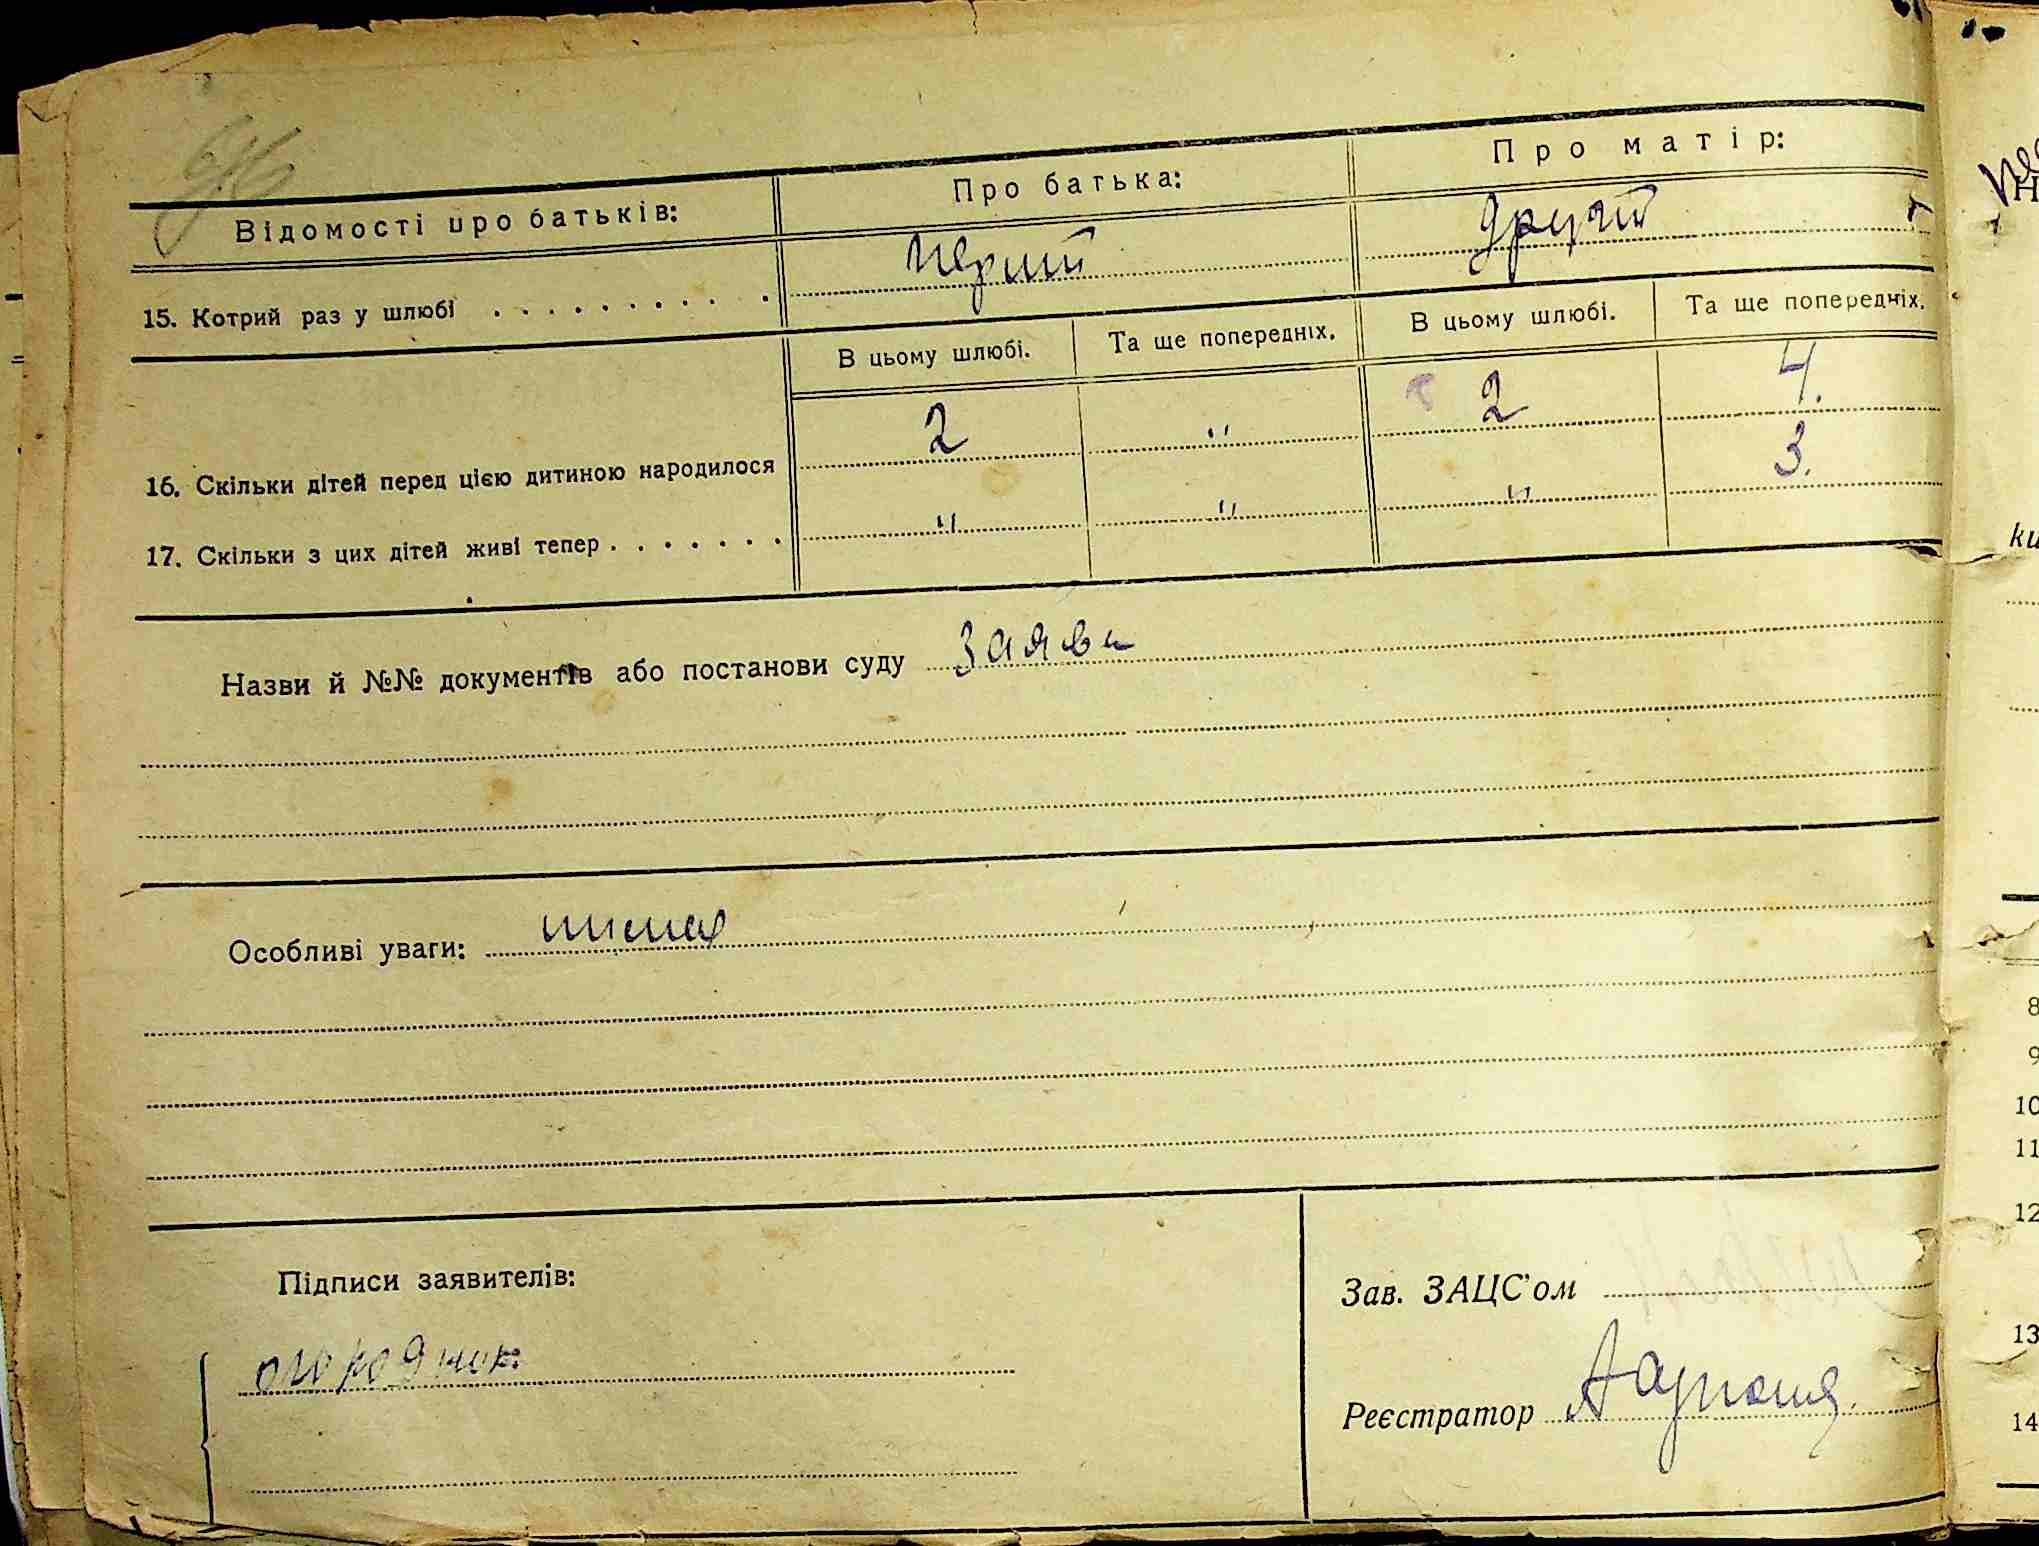 Відомості про батьків: Про батька: Про матір:
15. Котрий раз у шлюбі . . . . . . . . . . перший другий
В цьому шлюбі. Та ще попередніх. В цьому шлюбі. Та ще попередніх.
16. Скільки дітей перед цією дитиною народилося 2 " 2 4.
17. Скільки з цих дітей живі тепер . . . . . . . " " " 3.
Назви й №№ документів або постанови суду заява
Особливі уваги:
Підписи заявителів:
Зав. ЗАЦС'ом
Реєстратор
8
9
10
11
12
13
14